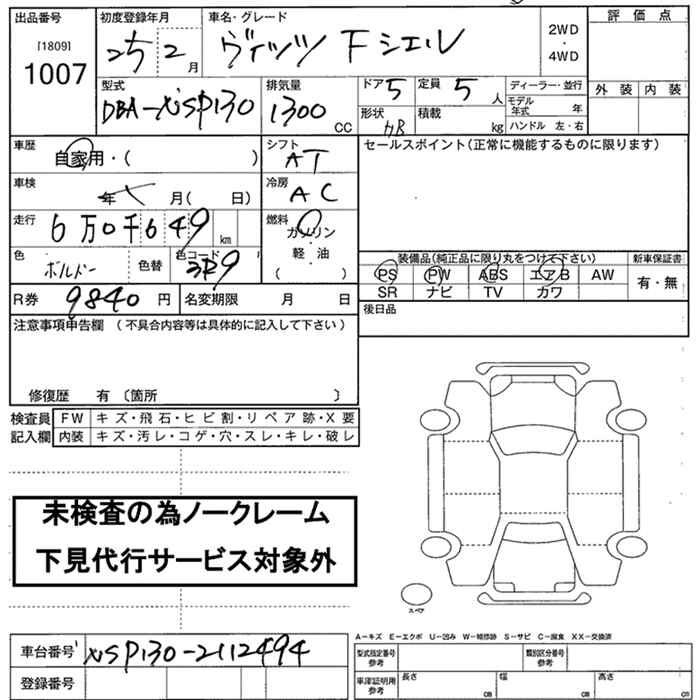 出品番号 初度登録年月 車名・グレード 評価点
[1809]
1007
25 2月 ヴィッツ F シエル 2WD・4WD
型式 排気量 ドア 5 定員 5人 ディーラー・並行 外装 内装
DBA- P130 1300cc 形状 HB 積載 kg モデル年式 年
ハンドル 左・右
車歴 自家用・( ) シフト AT セールスポイント(正常に機能するものに限ります)
車検 年 月( 日) 冷房 AC
走行 6万0千649km 燃料 ガソリン・軽・油 ( )
色 ボルドー 色替 色コード 3R9 装備品(純正品に限り丸をつけて下さい) 新車保証書
PS PW ABS エアB AW 有・無
SR ナビ TV カワ
R券 9840円 名変期限 月 日 後日品
注意事項申告欄 (不具合内容等は具体的に記入して下さい)
修復歴 有 〔箇所 〕
検査員 FW キズ・飛石・ヒビ割・リペア跡・X要
記入欄 内装 キズ・汚レ・コゲ・穴・スレ・キレ・破レ
未検査の為ノークレーム
下見代行サービス対象外
スペア
A-キズ E-エクボ U-凹み W-補修跡 S-サビ C-腐食 XX-交換済
車台番号 P130-2112494 型式指定番号 参考 類別区分番号 参考
登録番号 車庫証明用 参考 長さ cm 幅 cm 高さ cm